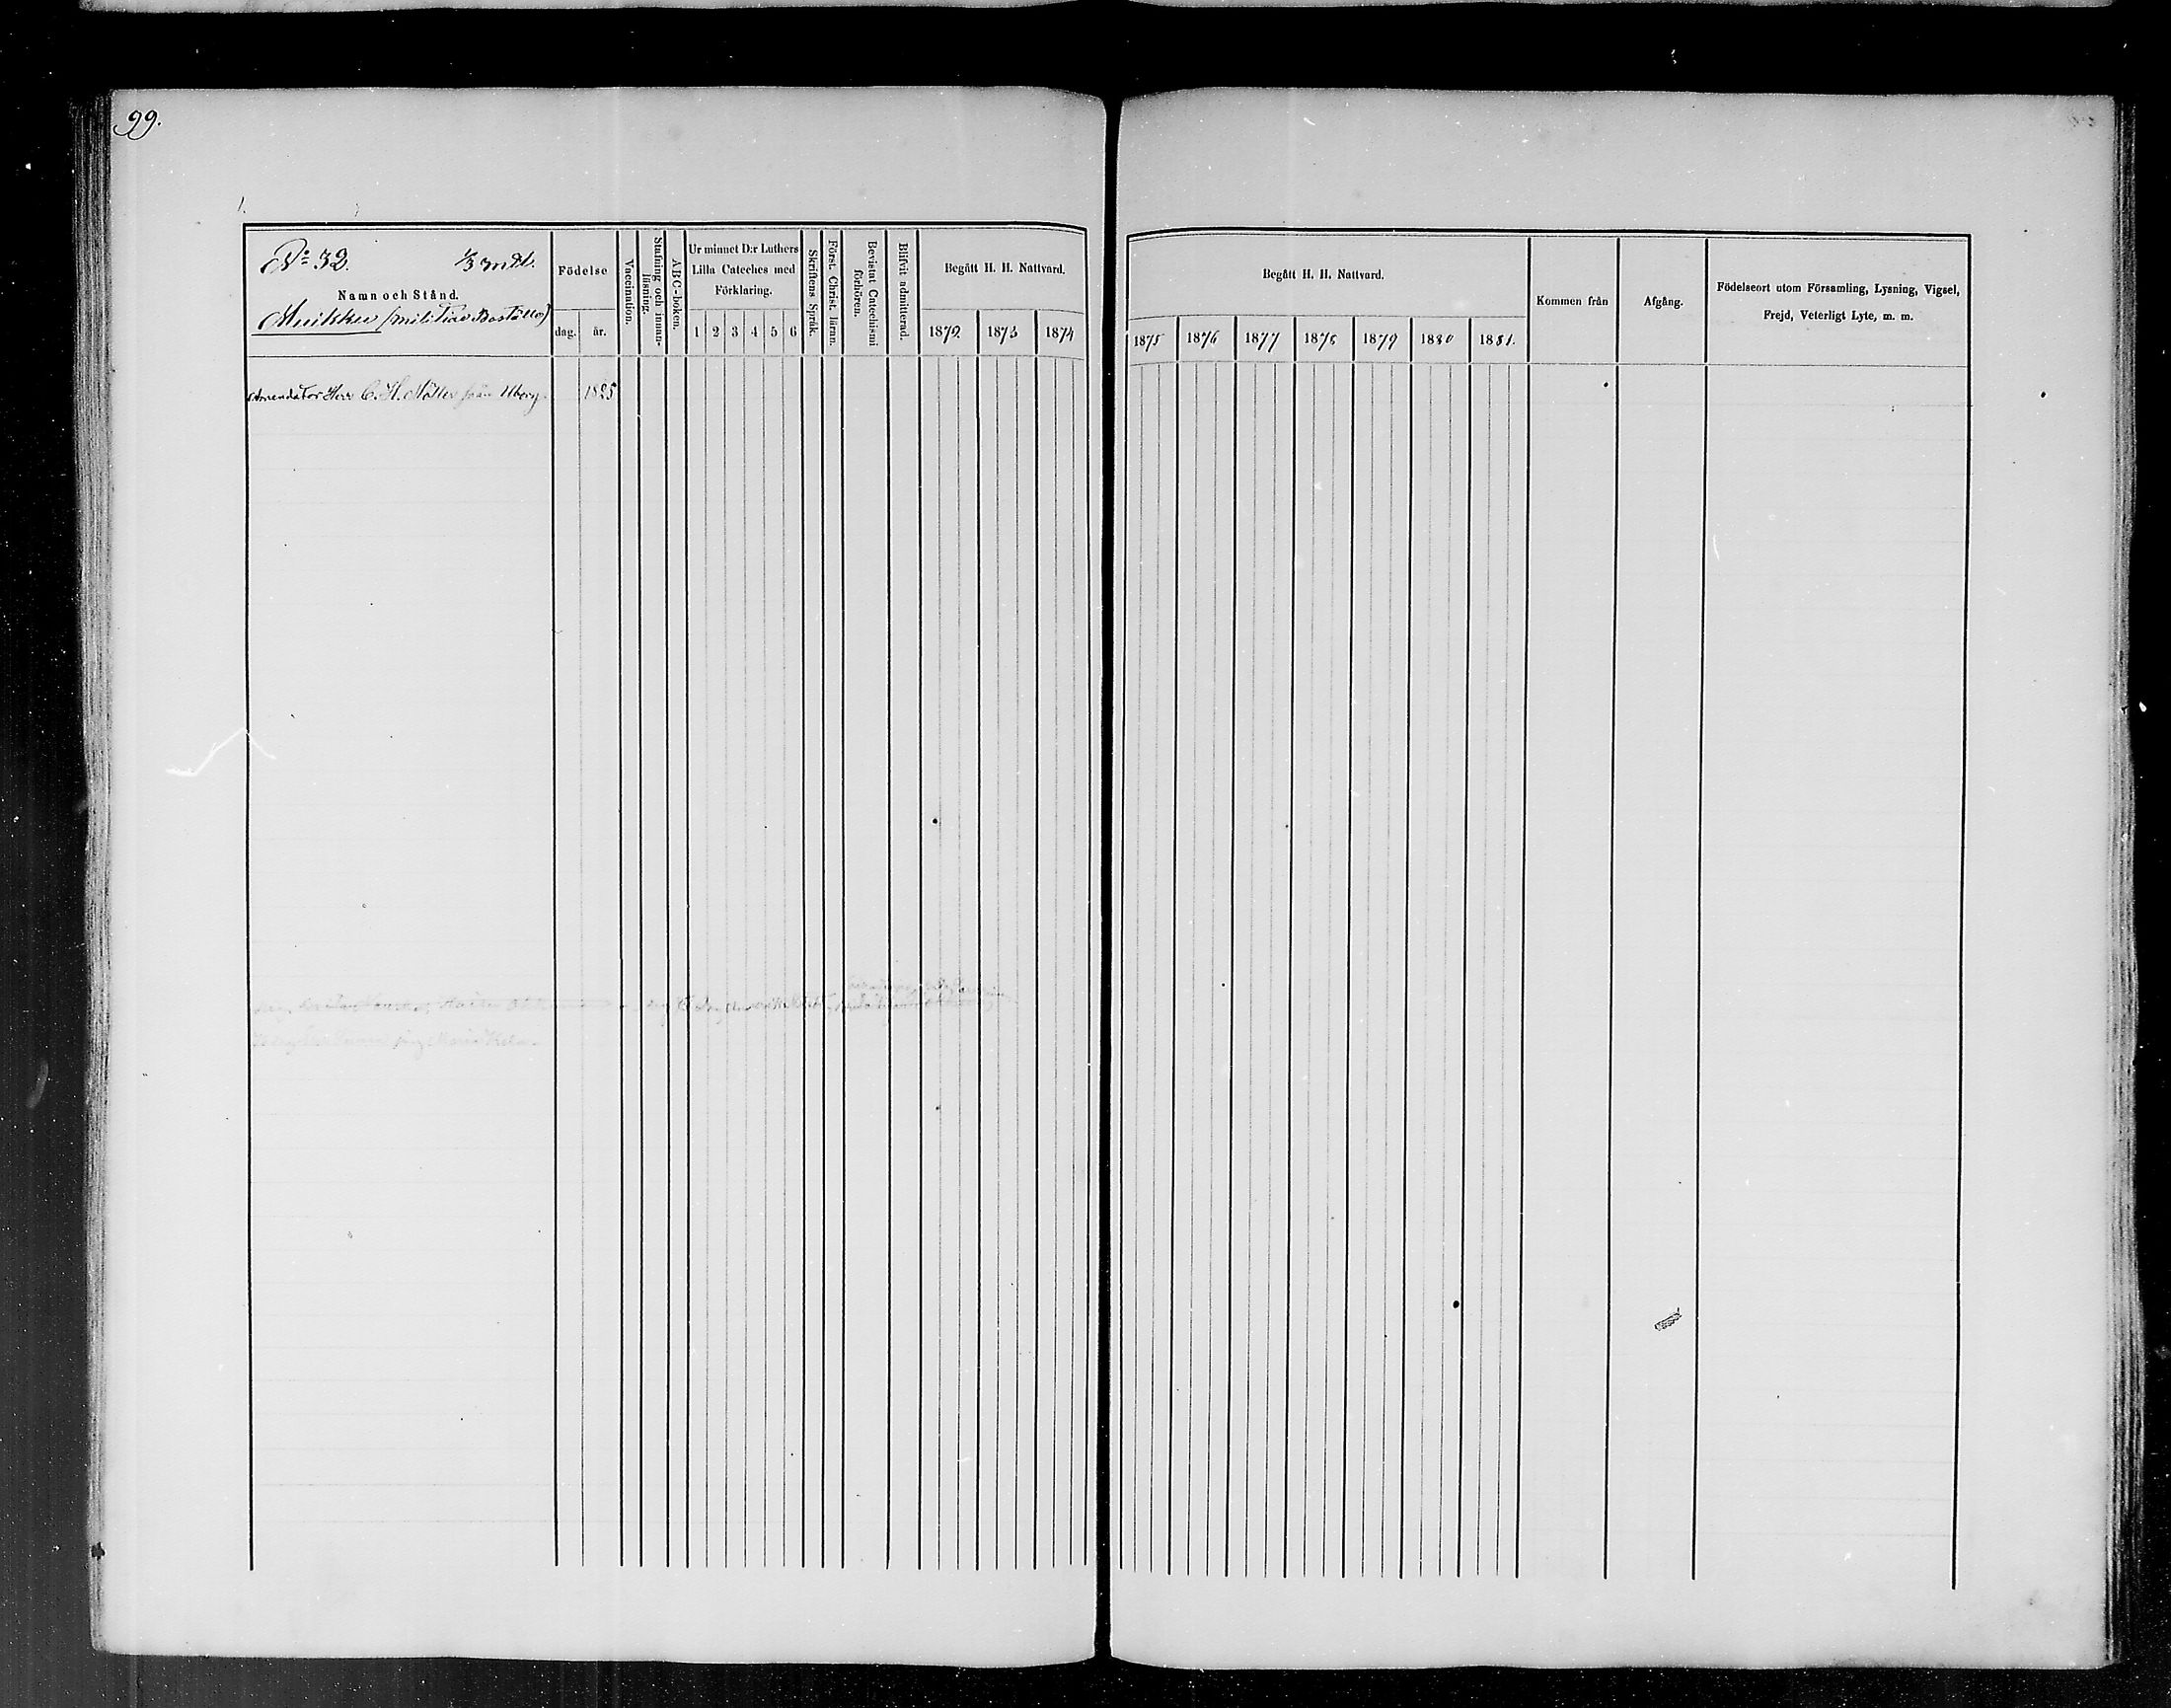 99.
Nº 32. 1/3 mtl.
Namn och Stånd.
Muikku (militiæ Boställe)
Födelse
dag. år.
Vaccination.
Stafning och innan-
läsning.
ABC-boken.
Ur minnet D:r Luthers
Lilla Cateches med
Förklaring.
1 2 3 4 5 6
Skriftens Språk.
Först. Christ. läran.
Bevistat Catechismi
förhören.
Blifvit admitterad.
Begått H. H. Nattvard.
1872 1873 1874
Begått H. H. Nattvard.
1875 1876 1877 1878 1879 1880 1881.
Kommen från
Afgång.
Födelseort utom Församling, Lysning, Vigsel,
Frejd, Veterligt Lyte, m. m.
Arrendator Herr C. H. Möller från Wborg. 1825